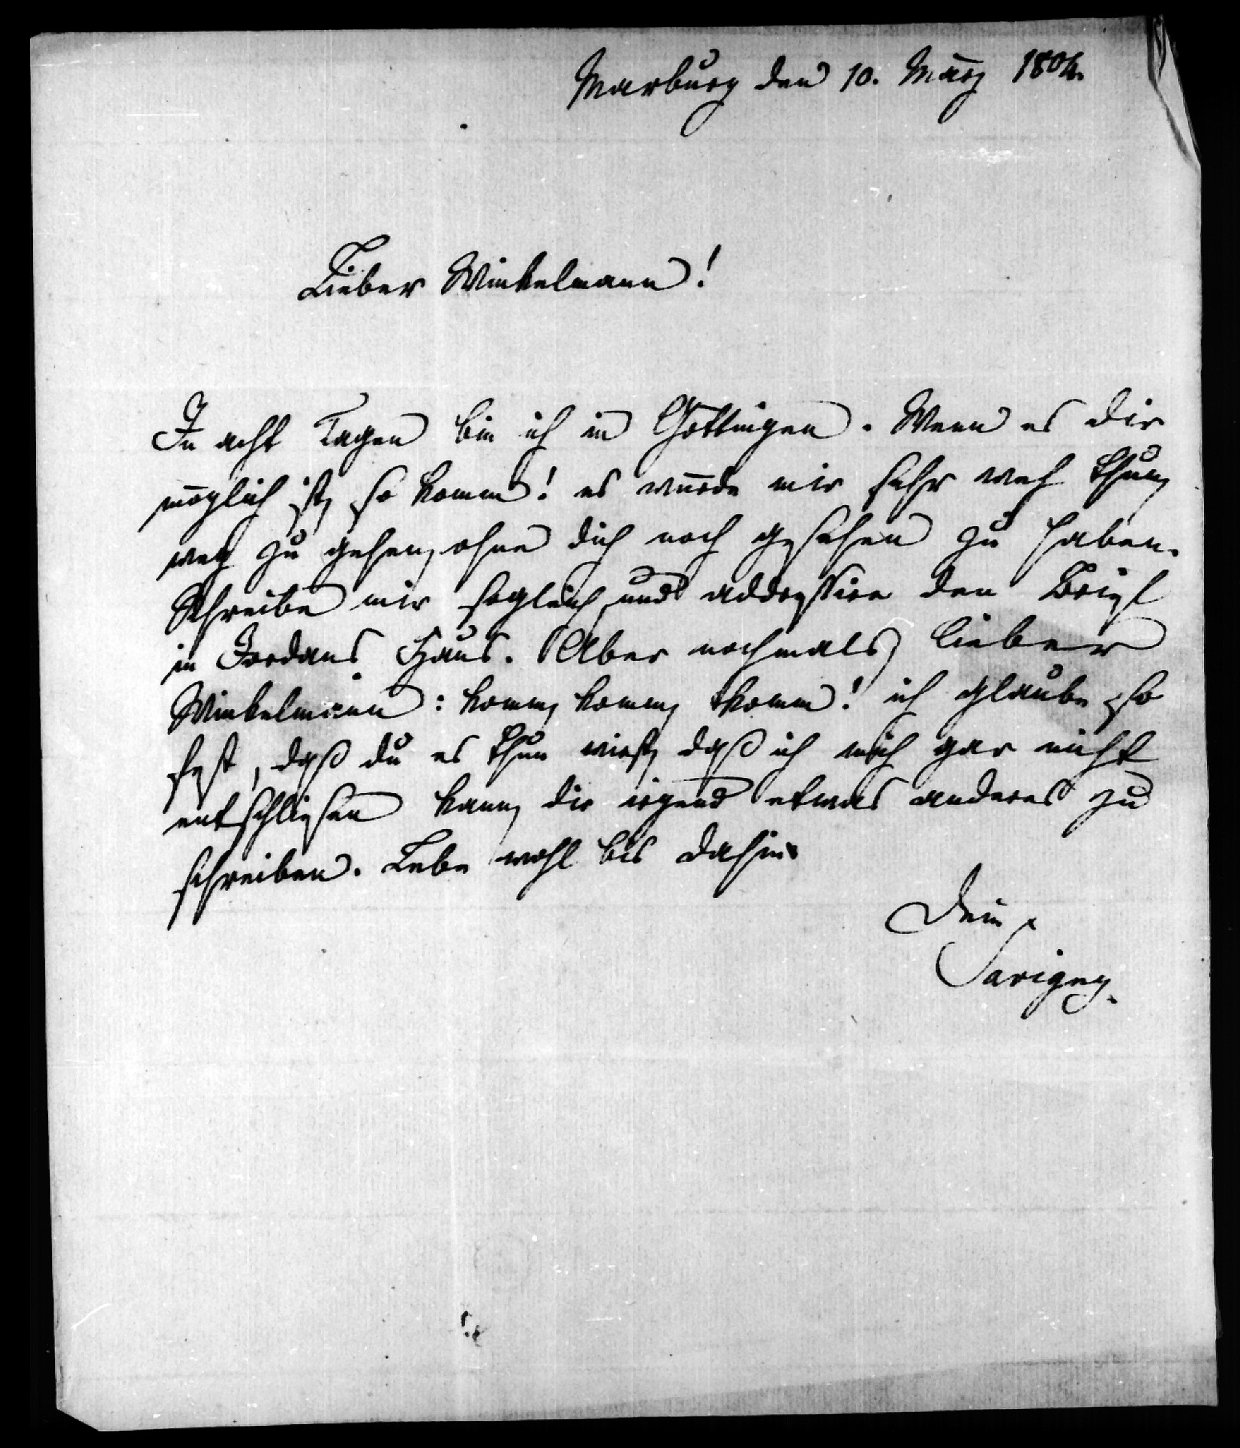 Marburg den 10. März 1804.
Lieber Winkelmann!
In acht Tagen bin ich in Göttingen. Wenn es dir
möglich ist, so komm! es würde mir sehr weh thun,
weg zu gehen, ohne dich noch gesehen zu haben.
Schreibe mir sogleich, und addressire den Brief
in Jordans Haus. Aber nochmals, lieber
Winkelmann: komm, komm, komm! ich glaube so
fest, daß du es thun wirst, daß ich mich gar nicht
entschliesen kann, dir irgend etwas anderes zu
schreiben. Lebe wohl bis dahin.
Dein
Savigny.